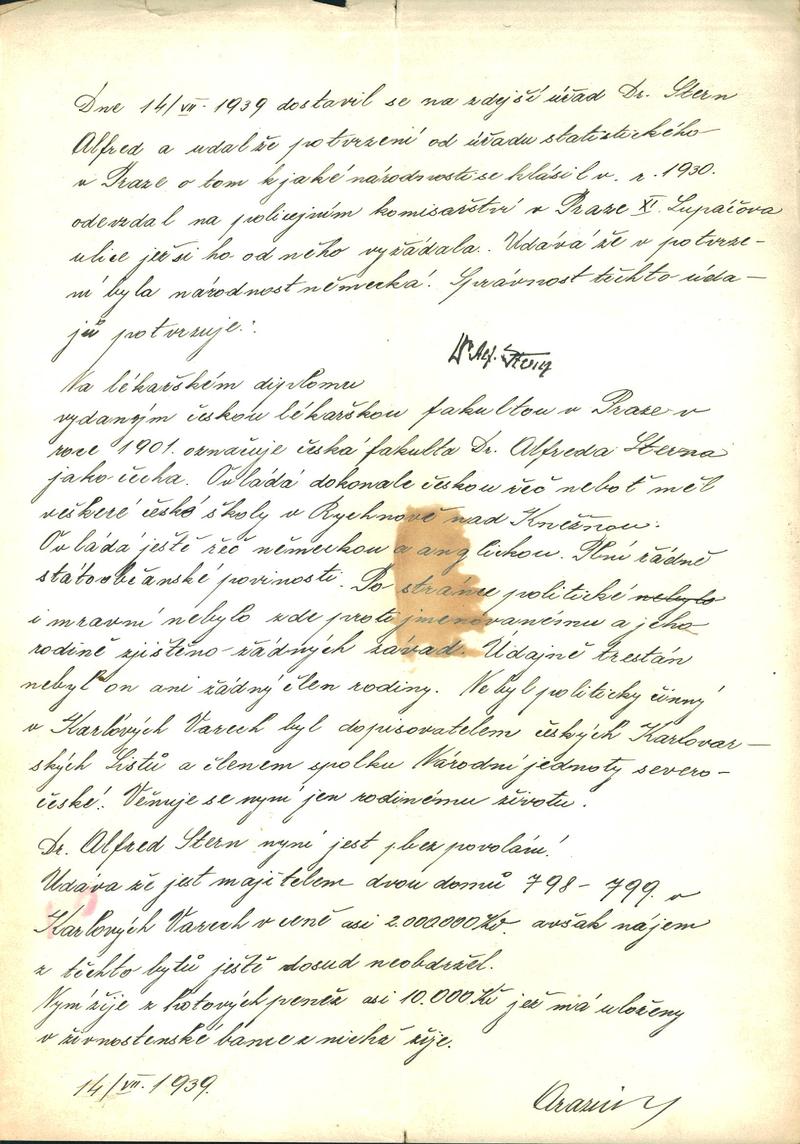 Dne 14/VII. 1939 dostavil se na zdejší úřad Dr. Stern
Alfred a udal že potvrzení od úřadu statistického
v Praze o tom k jaké národnosti se hlásil v. r. 1930.
odevzdal na policejním komisařství v Praze XI. Lupáčova
ulice jež si ho od něho vyžádala. Udává že v potvrze-
ní byla národnost německá. Správnost těchto úda-
jů potvrzuje:
Dr Alf. Stern
Na lékařském diplomu
vydaným českou lékařskou fakultou v Praze v
roce 1901. označuje česká fakulta Dr. Alfreda Sterna
jako čecha. Ovládá dokonale českou řeč neboť měl
veškeré české školy v Rychnově nad Kněžnou.
Ovládá ještě řeč německou a anglickou. Plní řádně
státoobčanské povinosti. Po stránce politické nebylo
i mravní nebylo zde proti jmenovanému a jeho
rodině zjištěno žádných závad. Údajně trestán
nebyl on ani žádný člen rodiny. Nebyl politicky činný
v Karlových Varech byl dopisovatelem českých Karlovar-
ských Listů a členem spolku Národní jednoty severo-
české. Věnuje se nyní jen rodinému životu.
Dr. Alfred Stern nyní jest bez povolání.
Udáva že jest majitelem dvou domů 798 - 799. v
Karlových Varech v ceně asi 2.000000 Kč. avšak nájem
z těchto bytů ještě dosud neobdržel.
Nyní žije z hotových peněz asi 10.000 Kč jež má uloženy
v živnostenské bance z nichž žije.
14/VII. 1939.